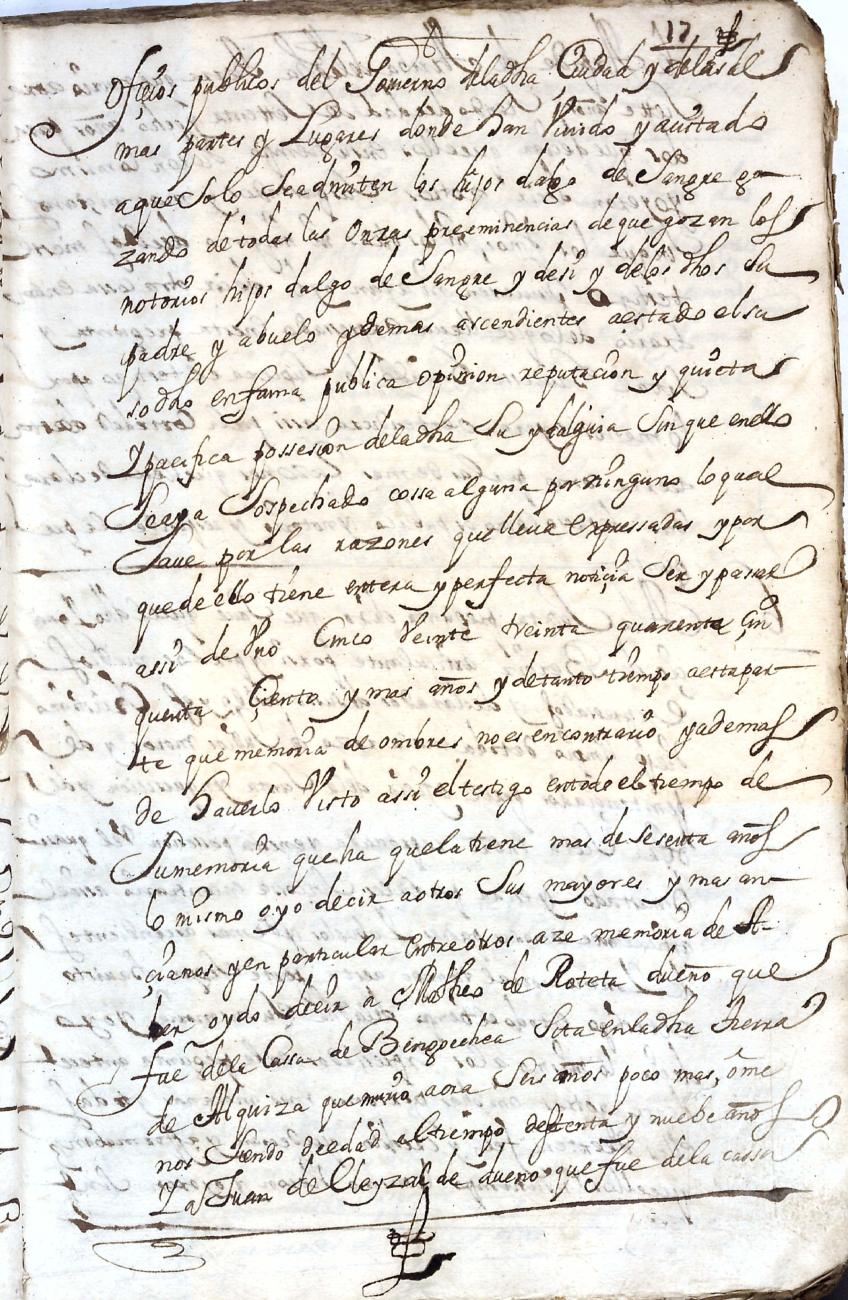 17
Ofiçios publicos del Gouierno deladha Çiudad y delas al
mas partes y Lugares donde han Viuido y auitado
aque Solo Seadmiten los hijos dalgo de Sangre go
zando de todas las onrras preeminencias de que gozan los
notorios hijos dalgo de Sangre y desi y delos dhos Su
padre y abuelo y demas ascendientes aestado el su
sodho enfama publica opinion reputaçion y quieta
Y pacifica possesion deladha Su ydalguia Sin que enello
Seaya Sospechado cossa alguna por ninguno lo qual
Saue por las razones que lleua expressadas y por
que de ello tiene entera y perfecta notiçia Ser y pasar
assi de Vno Cinco Veinte treinta quarenta Çin
quenta Çiento y mas años y de tanto tiempo aesta par
te que memoria de ombres no es en contrario y ademas
de hauerlo Visto assi el testigo entodo el tiempo de
Sumemoria que ha que la tiene mas de sesenta años
lo mismo oyo decir aotros Sus mayores y mas an
çianos y en particular Entre otros aze memoria de A-
ber oydo decir a Matheo de Roteta dueño que
fue dela Cassa de Bengoechea Sita enladha tierra
de Alquiza que murio aora Seis años poco mas, o me
nos Siendo de edad al tiempo de setenta y nuebe años
Y a Juan de Lleyzalde dueño que fue dela cassa